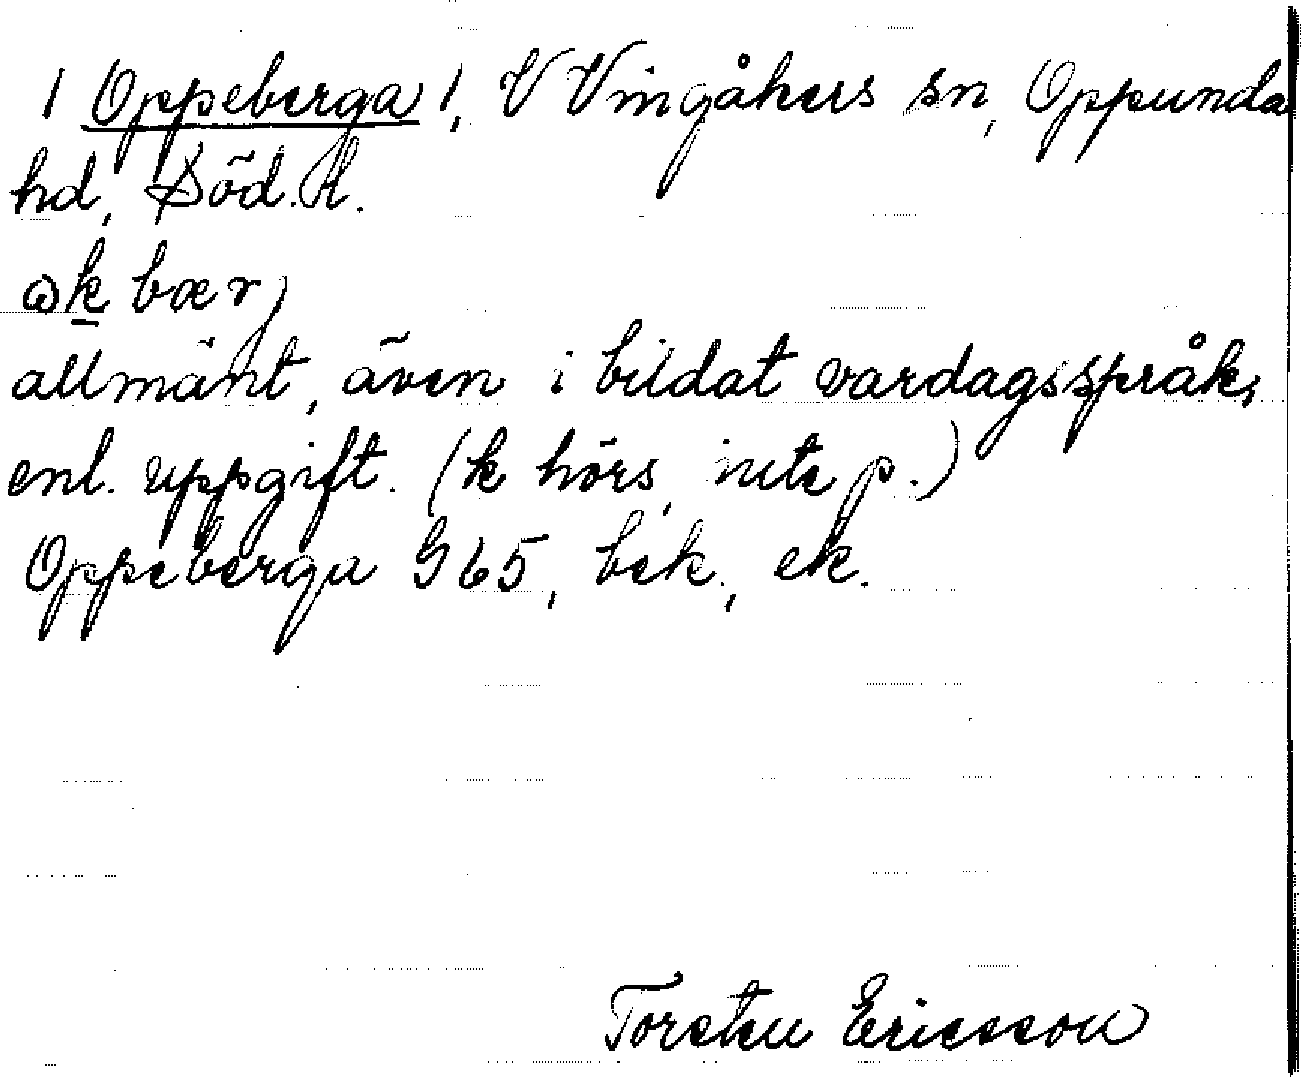 / Oppeberga /, V Vingåkers sn, Oppunda
hd, Söd. l.
ωk bær,
allmänt, även i bildat vardagsspråk,
enl. uppgift. (k hörs, inte p.)
Oppeberga G65, bek., ek.
Torsten Ericsson